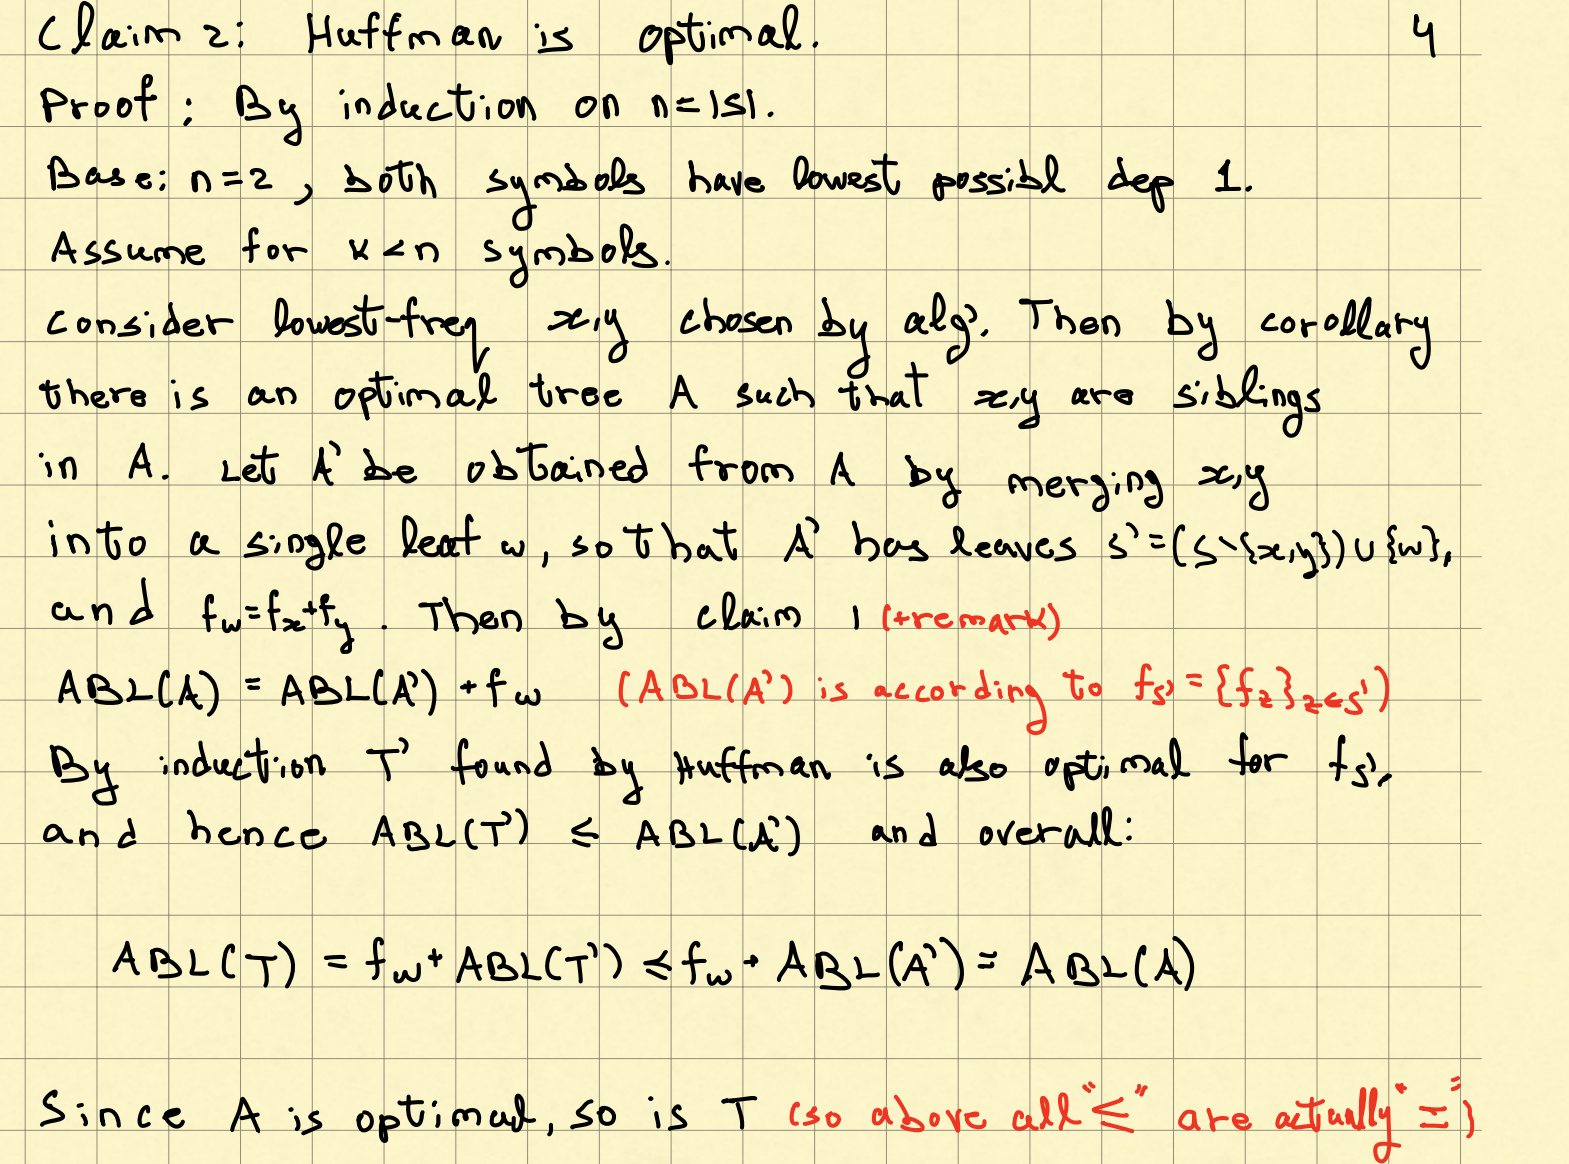 Claim 2: Huffman is optimal. 4
Proof: By induction on n=|S|.
Base: n=2, both symbols have lowest possibl dep 1.
Assume for k<n symbols.
Consider lowest-freq x,y chosen by alg'. Then by corollary
there is an optimal tree A such that x,y are siblings
in A. Let A' be obtained from A by merging x,y
into a single leaf w, so that A' has leaves S'=(S\{x,y})∪{w},
and f_w=f_x+f_y. Then by claim 1 (+remark)
ABL(A) = ABL(A') + f_w (ABL(A') is according to f_S' = {f_z}_z∈S')
By induction T' found by Huffman is also optimal for f_S',
and hence ABL(T') ≤ ABL(A') and overall:
ABL(T) = f_w + ABL(T') ≤ f_w + ABL(A') = ABL(A)
Since A is optimal, so is T (so above all "≤" are actually "=")